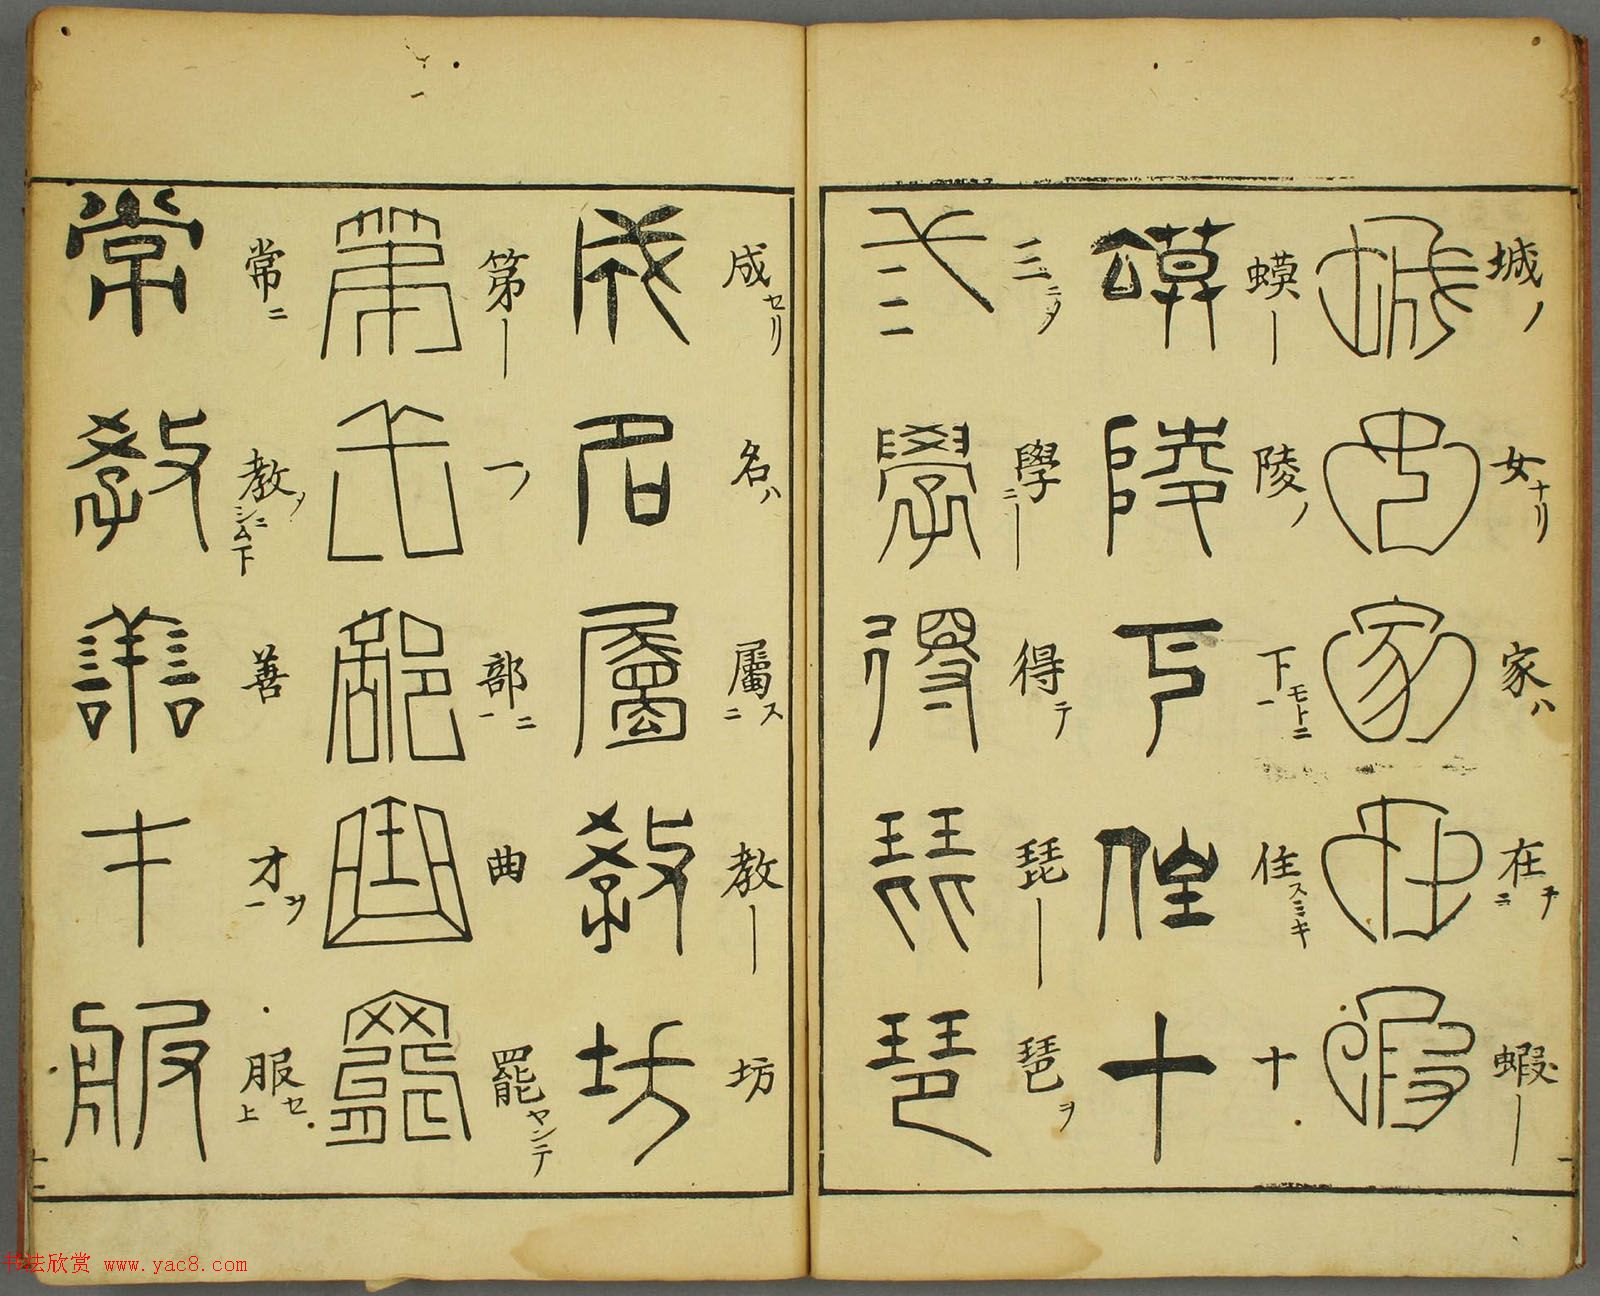 城ノ 女ナリ 家ハ 在ニ 蝦ー
城女家在蝦
蟆ー 陵ノ 下モトニ一 住スミキ 十
蟆陵下住十
三ニメ 學ニー 得テ 琵ー 琶ヲ
弎學得琵琶
成セリ 名ハ 屬スニ 教ー 坊
成名屬教坊
第ー 一ノ 部ニ一 曲 罷ヤンテ
第一部曲罷
常ニ 教ヲシムニ下 善 才ヲ一 服セ上
常教善才服
书法欣赏 www.yac8.com